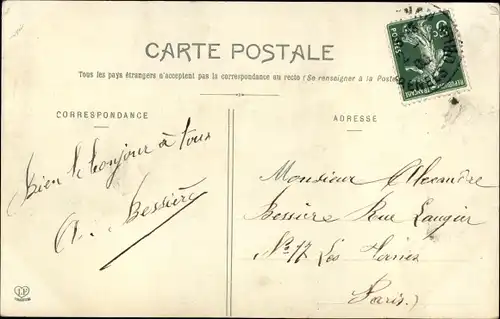 CARTE POSTALE
Tous les pays étrangers n'acceptent pas la correspondance au recto (Se renseigner à la Poste
CORRESPONDANCE
ADRESSE
Bien le bonjour à tous
A. Bessière
Monsieur Alexandre
Bessière Rue Laugier
N° 17 Les Ternes
Paris.)
POSTES
RÉPUBLIQUE FRANÇAISE